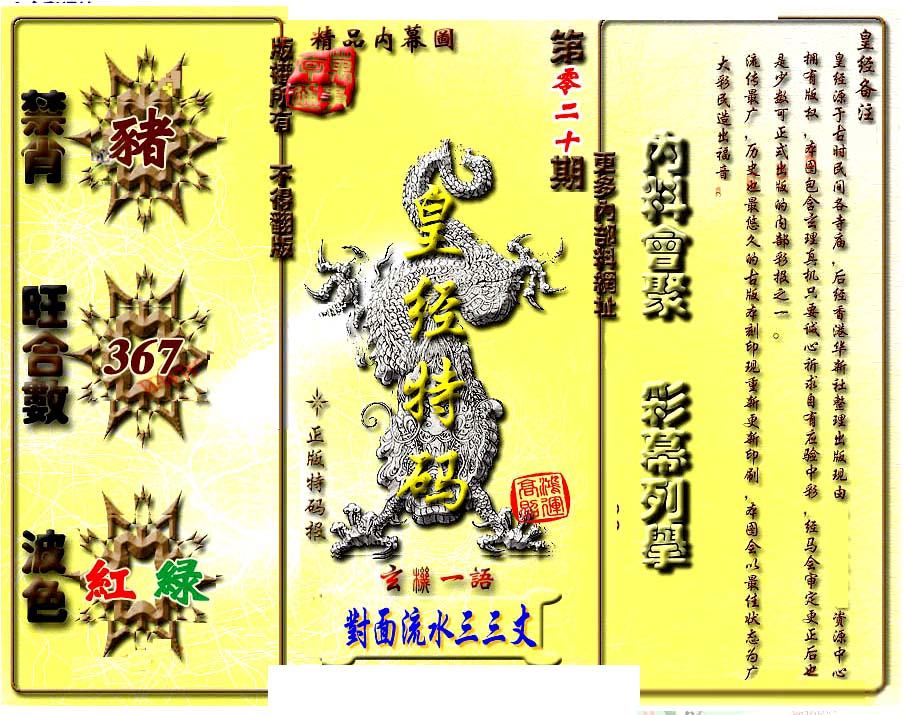 精品內幕圖
第零二十期
版權所有 不得翻版
更多內部料網址
禁肖
豬
旺合數
367
波色
紅 綠
皇经特码
正版特码报
鴻運
高照
玄機一語
對面流水三三丈
內料會聚 彩幕列舉
皇经备注
皇经源于古时民间各寺庙,后经香港华新社整理出版现由 资源中心
拥有版权,本图包含玄理真机只要诚心祈求自有应验中彩,经马会审定更正后也
是少数可正式出版的内部彩报之一。
流传最广,历史也最悠久的古版本刻印现重新更新印刷,本图会以最佳状态为广
大彩民造出福音